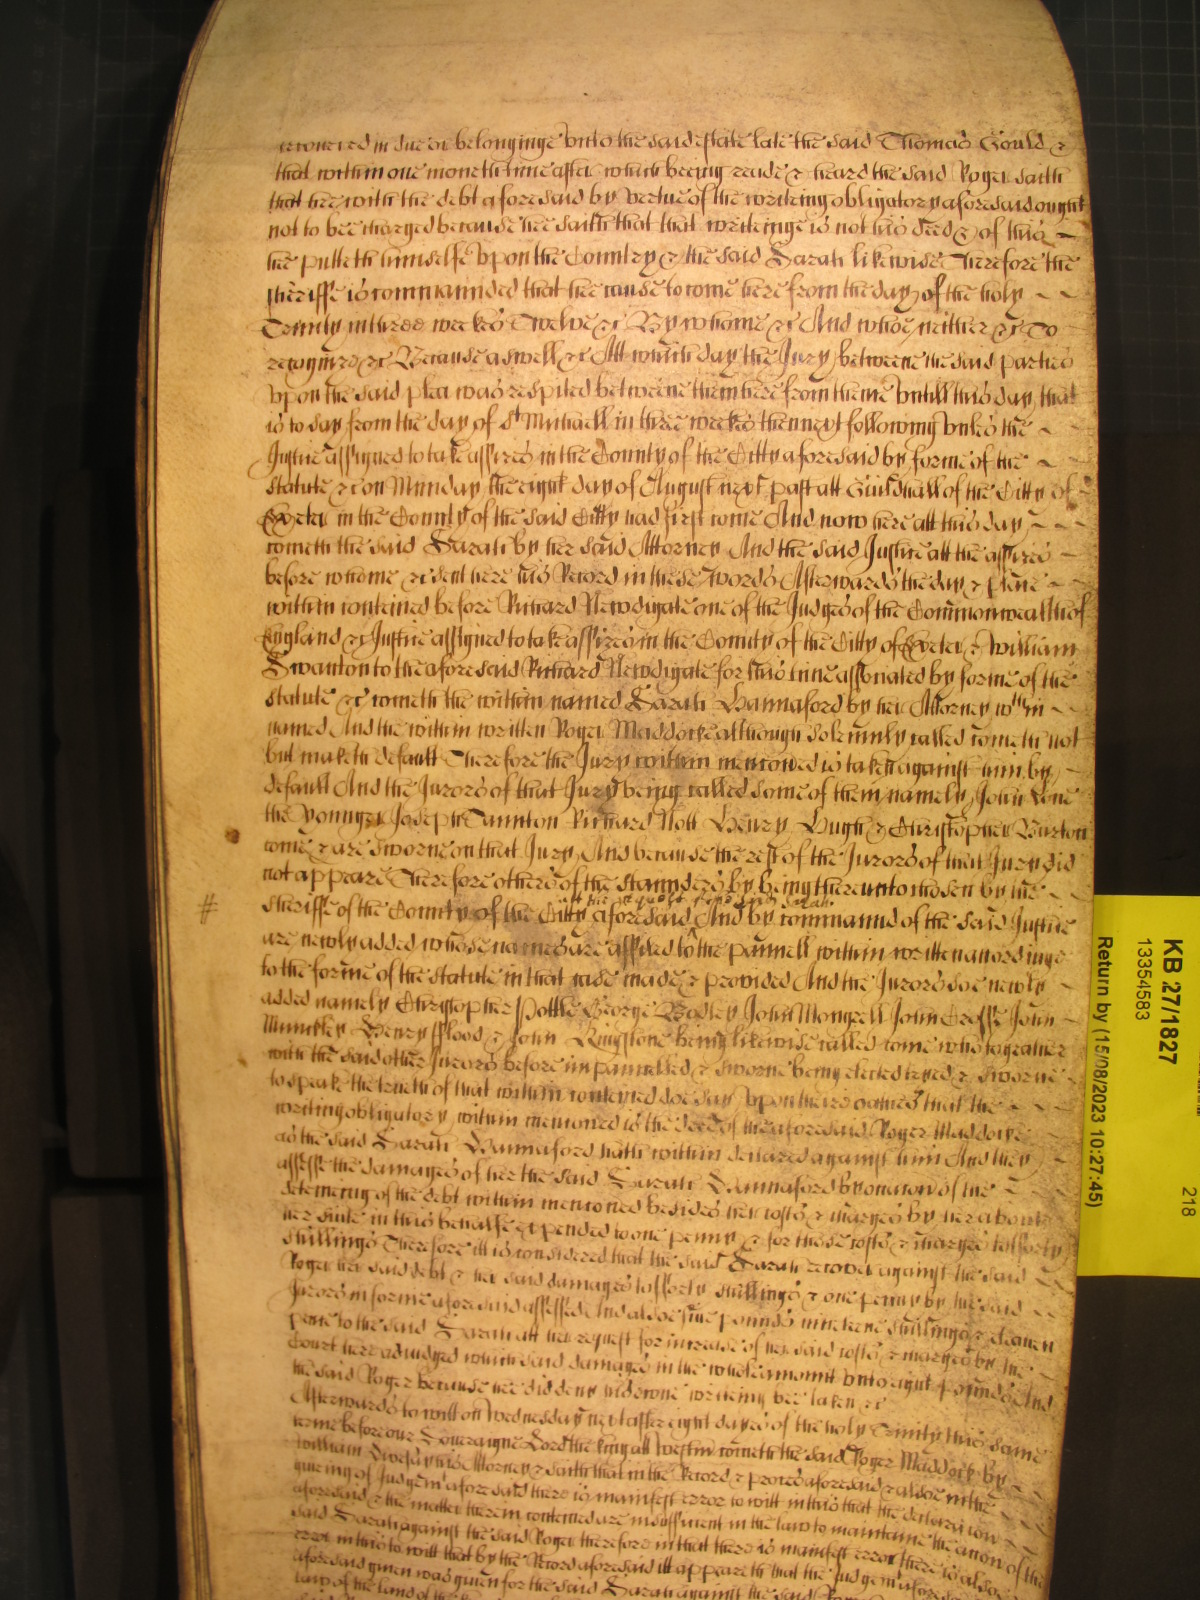 recovered in due or belonginge unto the said estate late the said Thomas Gould &
that within one moneth time after which beeing reade & heard the said Roger saith
that hee with the debt aforesaid by vertue of the writeing obligatory aforesaid ought
not to bee charged because hee saith that that writeinge is not his deed & of this
hee putteth himselfe upon the Country & the said Sarah likewise Therefore the
sheriffe is commannded that hee cause to come here from the day of the holy
Trinity in three weekes Twelve &c By whome &c And whoe neither &c To
recognize &c Because aswell &c Att which day the Jury betweene the said parties
upon the said plea was respited betweene them here from thence untill this day that
is to day from the day of St Michaell in three weekes then next following unles the
Justice assigned to take assizes in the County of the Citty aforesaid by forme of the
statute &c on Munday the eight day of August next past att Guildhall of the Citty of
Exeter in the County of the said Citty had first come And now here att this day
cometh the said Sarah by her said Attorney And the said Justice att the assizes
before whome &c sent here his Record in these words Afterwards the day & place
within conteined before Richard Newdigate one of the Judges of the Commonwealth of
England &c Justice assigned to take assizes in the County of the Citty of Exeter & William
Swanton to the aforesaid Richard Newdigate for this time assotiated by forme of the
statute &c cometh the within named Sarah Hannaford by her Attorney wthin
named And the within written Roger Maddocke although solemnly called cometh not
but maketh default Therefore the Jury within mencioned is taken against him by
default And the Jurors of that Jury being called some of them namely John Cone
the younger Joseph Taunton Richard Nott Henry Hugh & Christopher Burton
come & are sworne on that Jury And because the rest of the Jurors of that Jury did
not appeare Therefore others of the standers by being thereunto chosen by the
# sheriffe of the County of the Citty aforesaid att the request of the said Sarah And by commannd of the said Justice
are newly added whose names are affiled to the pannell within written accordinge
to the forme of the statute in that case made & provided And the Jurors soe newly
added namely Christopher Pottle George Bodley John Mongell John Crosse John
Munckley Henry fflood & John Kingstone being likewise called come who togeather
with the said other Jurors before impannelled & sworne being elected tryed & sworne
to speake the trueth of that within conteyned doe say upon theire oathes that the
writing obligatory within mencioned is the deed of the aforesaid Roger Maddocke
as the said Sarah Hannaford hath within declared against him And they
assesse the damages of her the said Sarah Hannaford by occacion of the
deteineing of the debt within mencioned besides her costs & charges by her about
her suite in this behalfe expended to one penny & for those costs & charges to fforty
shillings Therefore itt is considered that the said Sarah recover against the said
Roger her said debt & her said damages to fforty shillings & one penny by the said
Jurors in forme aforesaid assessed And alsoe five pounds nineteene shillings & eleaven
pence to the said Sarah att her request for increase of her said costs & charges by the
Court here adjudged which said damages in the whole amount unto eight pounds And
the said Roger because hee did deny his owne writeing bee taken &c
Afterwards to witt on Wednesday next after eight dayes of the holy Trinity this same
terme before our Soveraigne Lord the king att Westm cometh the said Roger Maddock by
William his Attorney & saith that in the Record & proces aforesaid & alsoe in the
giveing of Judgemt aforesaid there is manifest error to witt in this that the declaracion
aforesaid & the matter therein conteined are insufficient in the law to maintaine the accion of the
said Sarah against the said Roger therefore in that there is manifest error there is alsoe
error in this to witt that by the Record aforesaid itt appeareth that the Judgemt aforesaid
aforesaid given was given for the said Sarah against the said
law of the land of
KB 27/1827
13354583
218
Return by (15/08/2023 10:27:45)